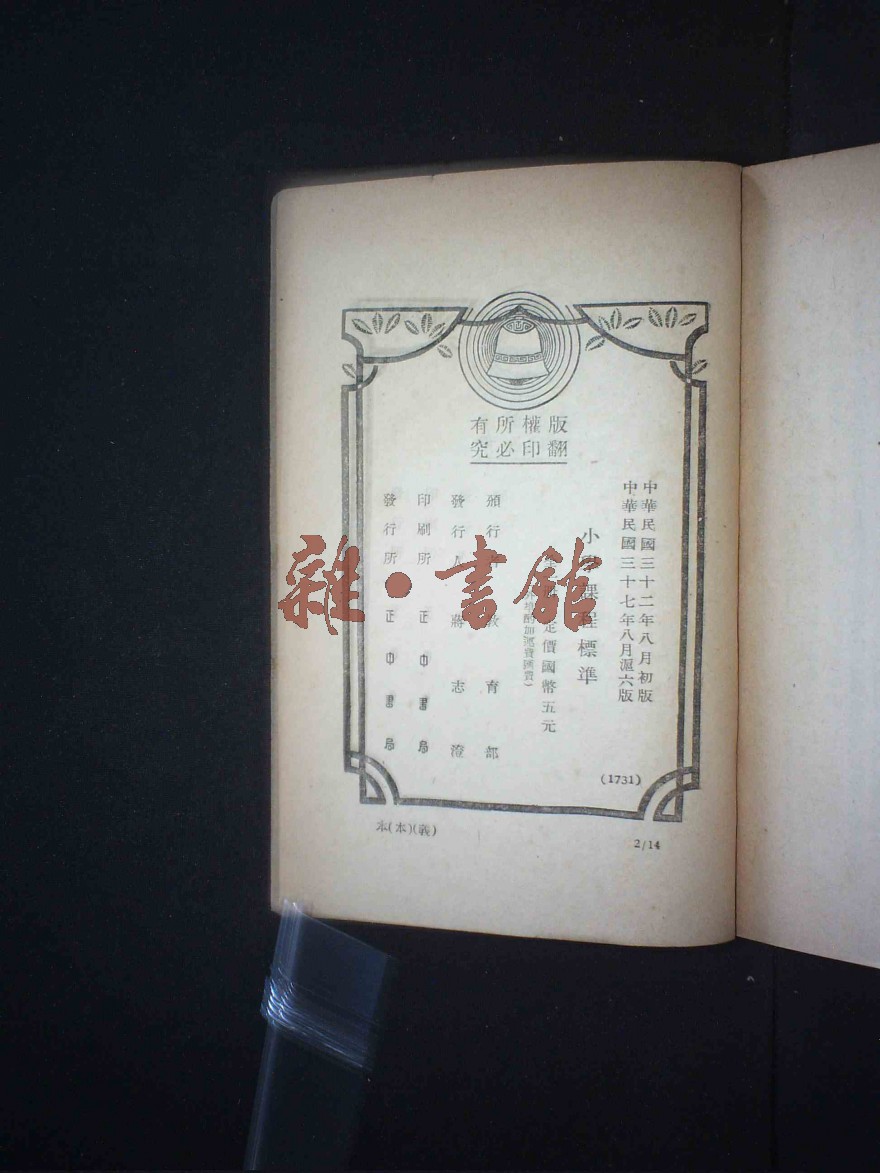 版權所有
翻印必究
中華民國三十二年八月初版
中華民國三十七年八月滬六版
小 課程標準
定價國幣五元
酌加運費匯費）
頒行 教育部
發行人 蔣志澄
印刷所 正中書局
發行所 正中書局
(1731)
本(本)(義)
2/14
雜·書館